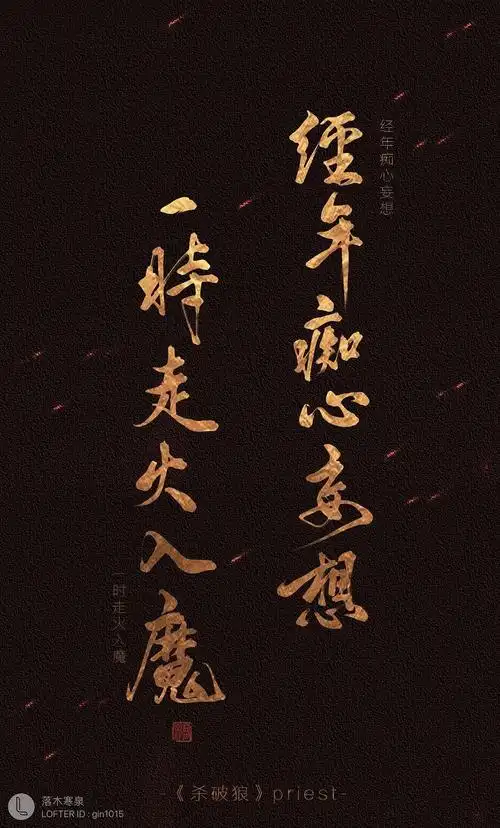 經年痴心妄想
经年痴心妄想
一時走火入魔
一时走火入魔
-《杀破狼》priest-
落木寒泉
LOFTER ID : gin1015